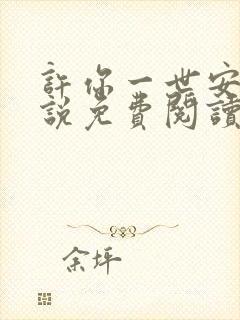 許你一世安
說免費閱讀
余坪